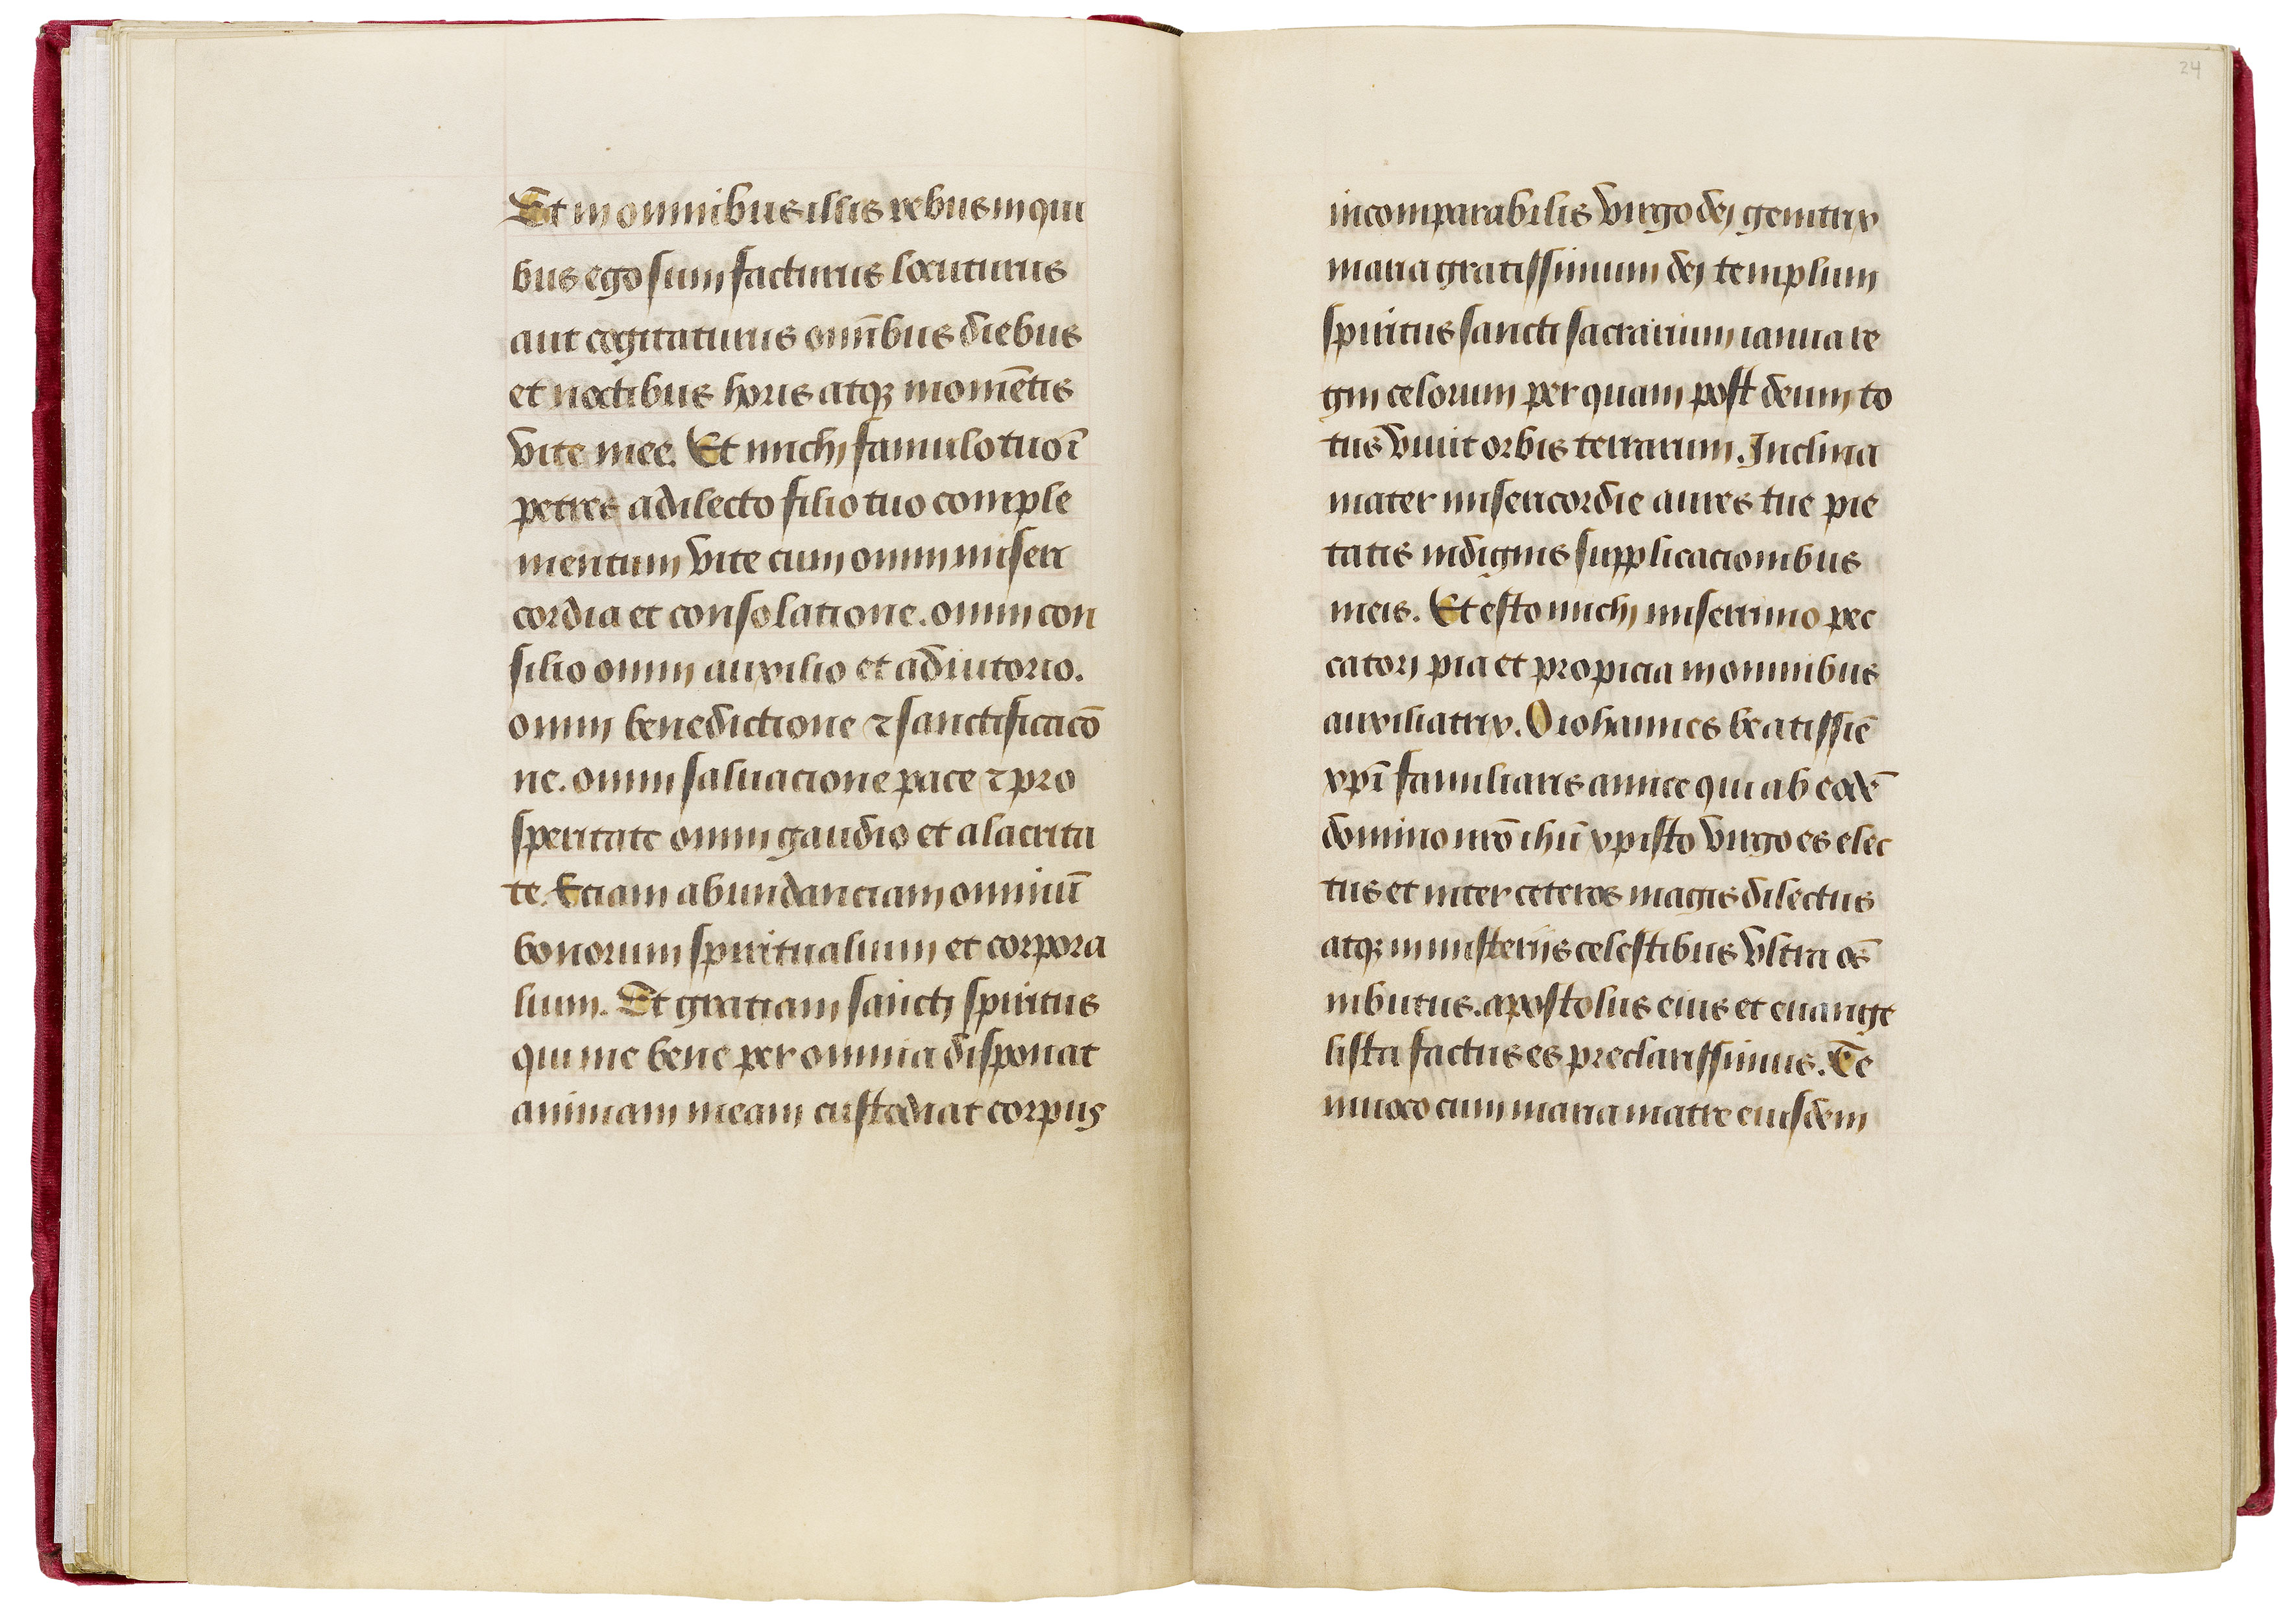 Et in omnibus illis rebus in qui
bus ego sum facturus locuturus
aut cogitaturus om̄ibus diebus
et noctibus horis atqȝ momētis
vite mee. Et michi famulo tuo ī
petres a dilecto filio tuo comple
mentum vite cum omni miseri
cordia et consolatione. omni con
silio omni auxilio et adiutorio.
omni benedictione ⁊ sanctificacō
ne. omni saluacione pace ⁊ pro
speritate omni gaudio et alacrita
te. Eciam abundanciam omniū
bonorum spiritualium et corpora
lium. Et gratiam sancti spiritus
qui me bene per omnia disponat
animam meam custodiat corpus
24
incomparabilis virgo dei genitrix
maria gratissimum dei templum
spiritus sancti sacrarium ianua re
gni celorum per quam post deum to
tus viuit orbis terrarum. Inclina
mater misericordie aures tue pie
tatis indignis supplicacionibus
meis. Et esto michi miserrimo pec
catori pia et propicia in omnibus
auxiliatrix. O iohannes beatissīe
xpī familiaris amice qui ab eodē
domino nrō ihū xpisto virgo es elec
tus et inter ceteros magis dilectus
atqȝ in misteriis celestibus vltra oēs
inbutus. apostolus eius et euange
lista factus es preclarissimus. Te
inuoco cum maria matre eiusdem